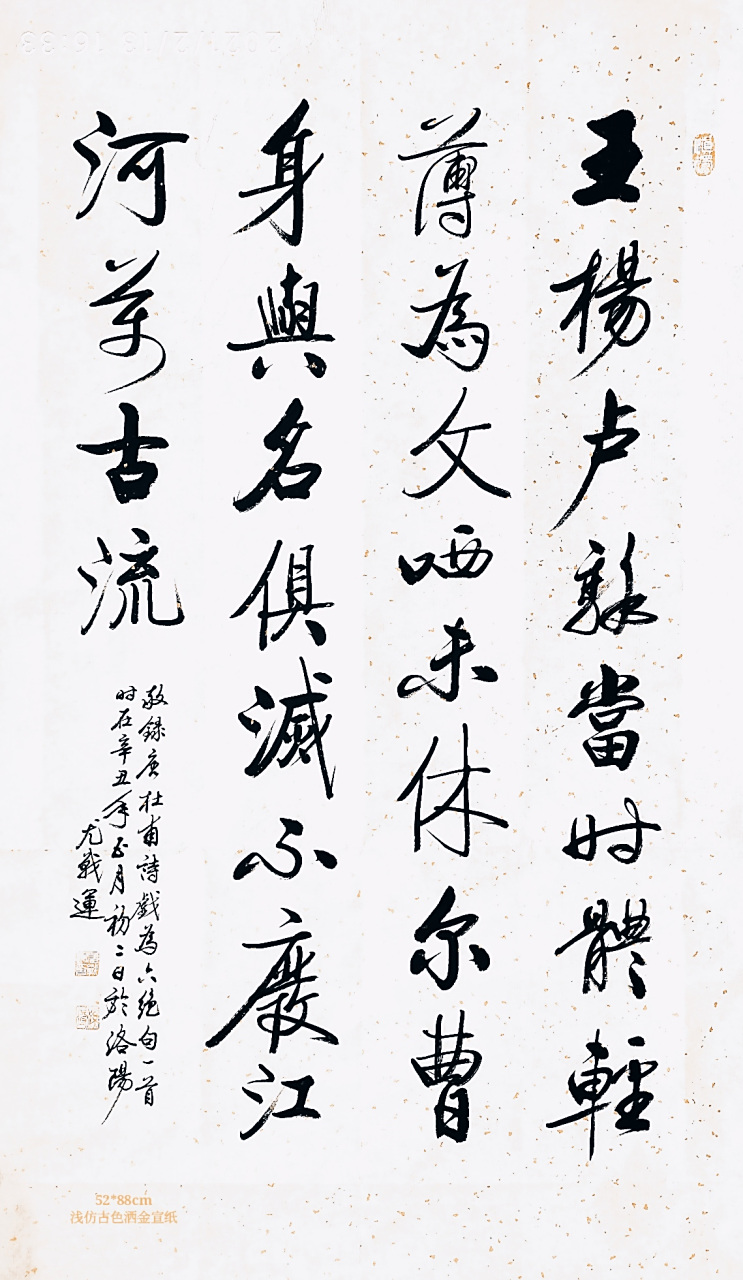 王楊卢駱當时體輕
薄為文哂未休尔曹
身與名俱滅不廢江
河萬古流
敬録唐杜甫詩戲為六絶句一首
时在辛丑年正月初二日於洛陽
尤戰運
52*88cm
浅仿古色洒金宣纸